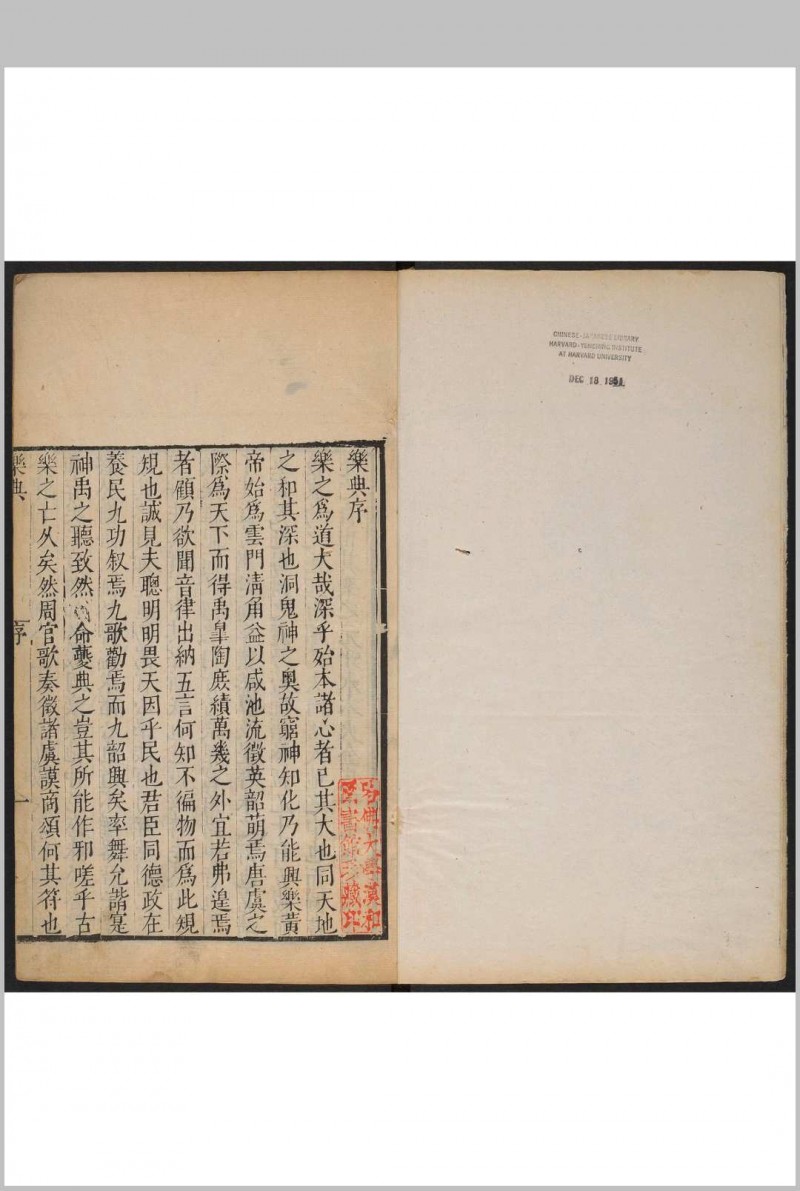 CHINESE-JAPANESE LIBRARY
HARVARD-YENCHING INSTITUTE
AT HARVARD UNIVERSITY
DEC 18 1951
樂典序
樂之爲道大哉深乎始本諸心者已其大也同天地
之和其深也洞鬼神之奥故窮神知化乃能興樂黄
帝始爲雲門清角益以咸池流徵英韶萌焉唐虞之
際爲天下而得禹臯陶庶績萬幾之外宜若弗遑焉
者顧乃欲聞音律出納五言何知不徧物而爲此規
規也誠見夫聰明明畏天因乎民也君臣同德政在
養民九功叙焉九歌勸焉而九韶興矣率舞允諧寔
神禹之聽致然命夔典之豈其所能作邪嗟乎古
樂之亡久矣然周官歌奏徵諸虞謨商頌何其符也
樂典
序
一
哈佛大學漢和
圖書館珍藏印